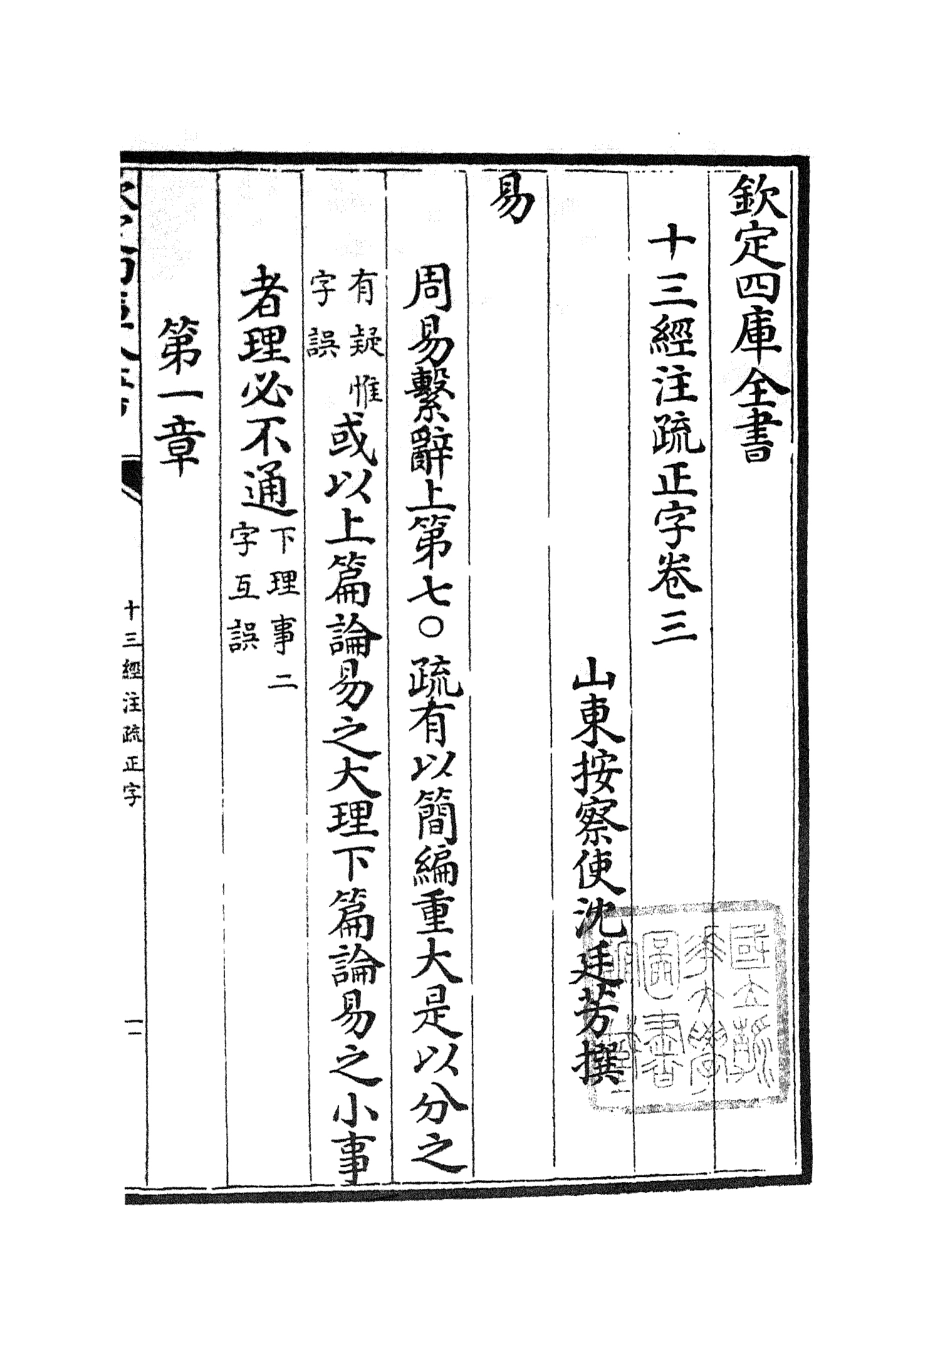 欽定四庫全書
十三經注疏正字卷三
山東按察使沈廷芳撰
易
周易繫辭上第七〇疏有以簡編重大是以分之
有疑惟
字誤
或以上篇論易之大理下篇論易之小事
者理必不通
下理事二
字互誤
第一章
十三經注疏正字
一